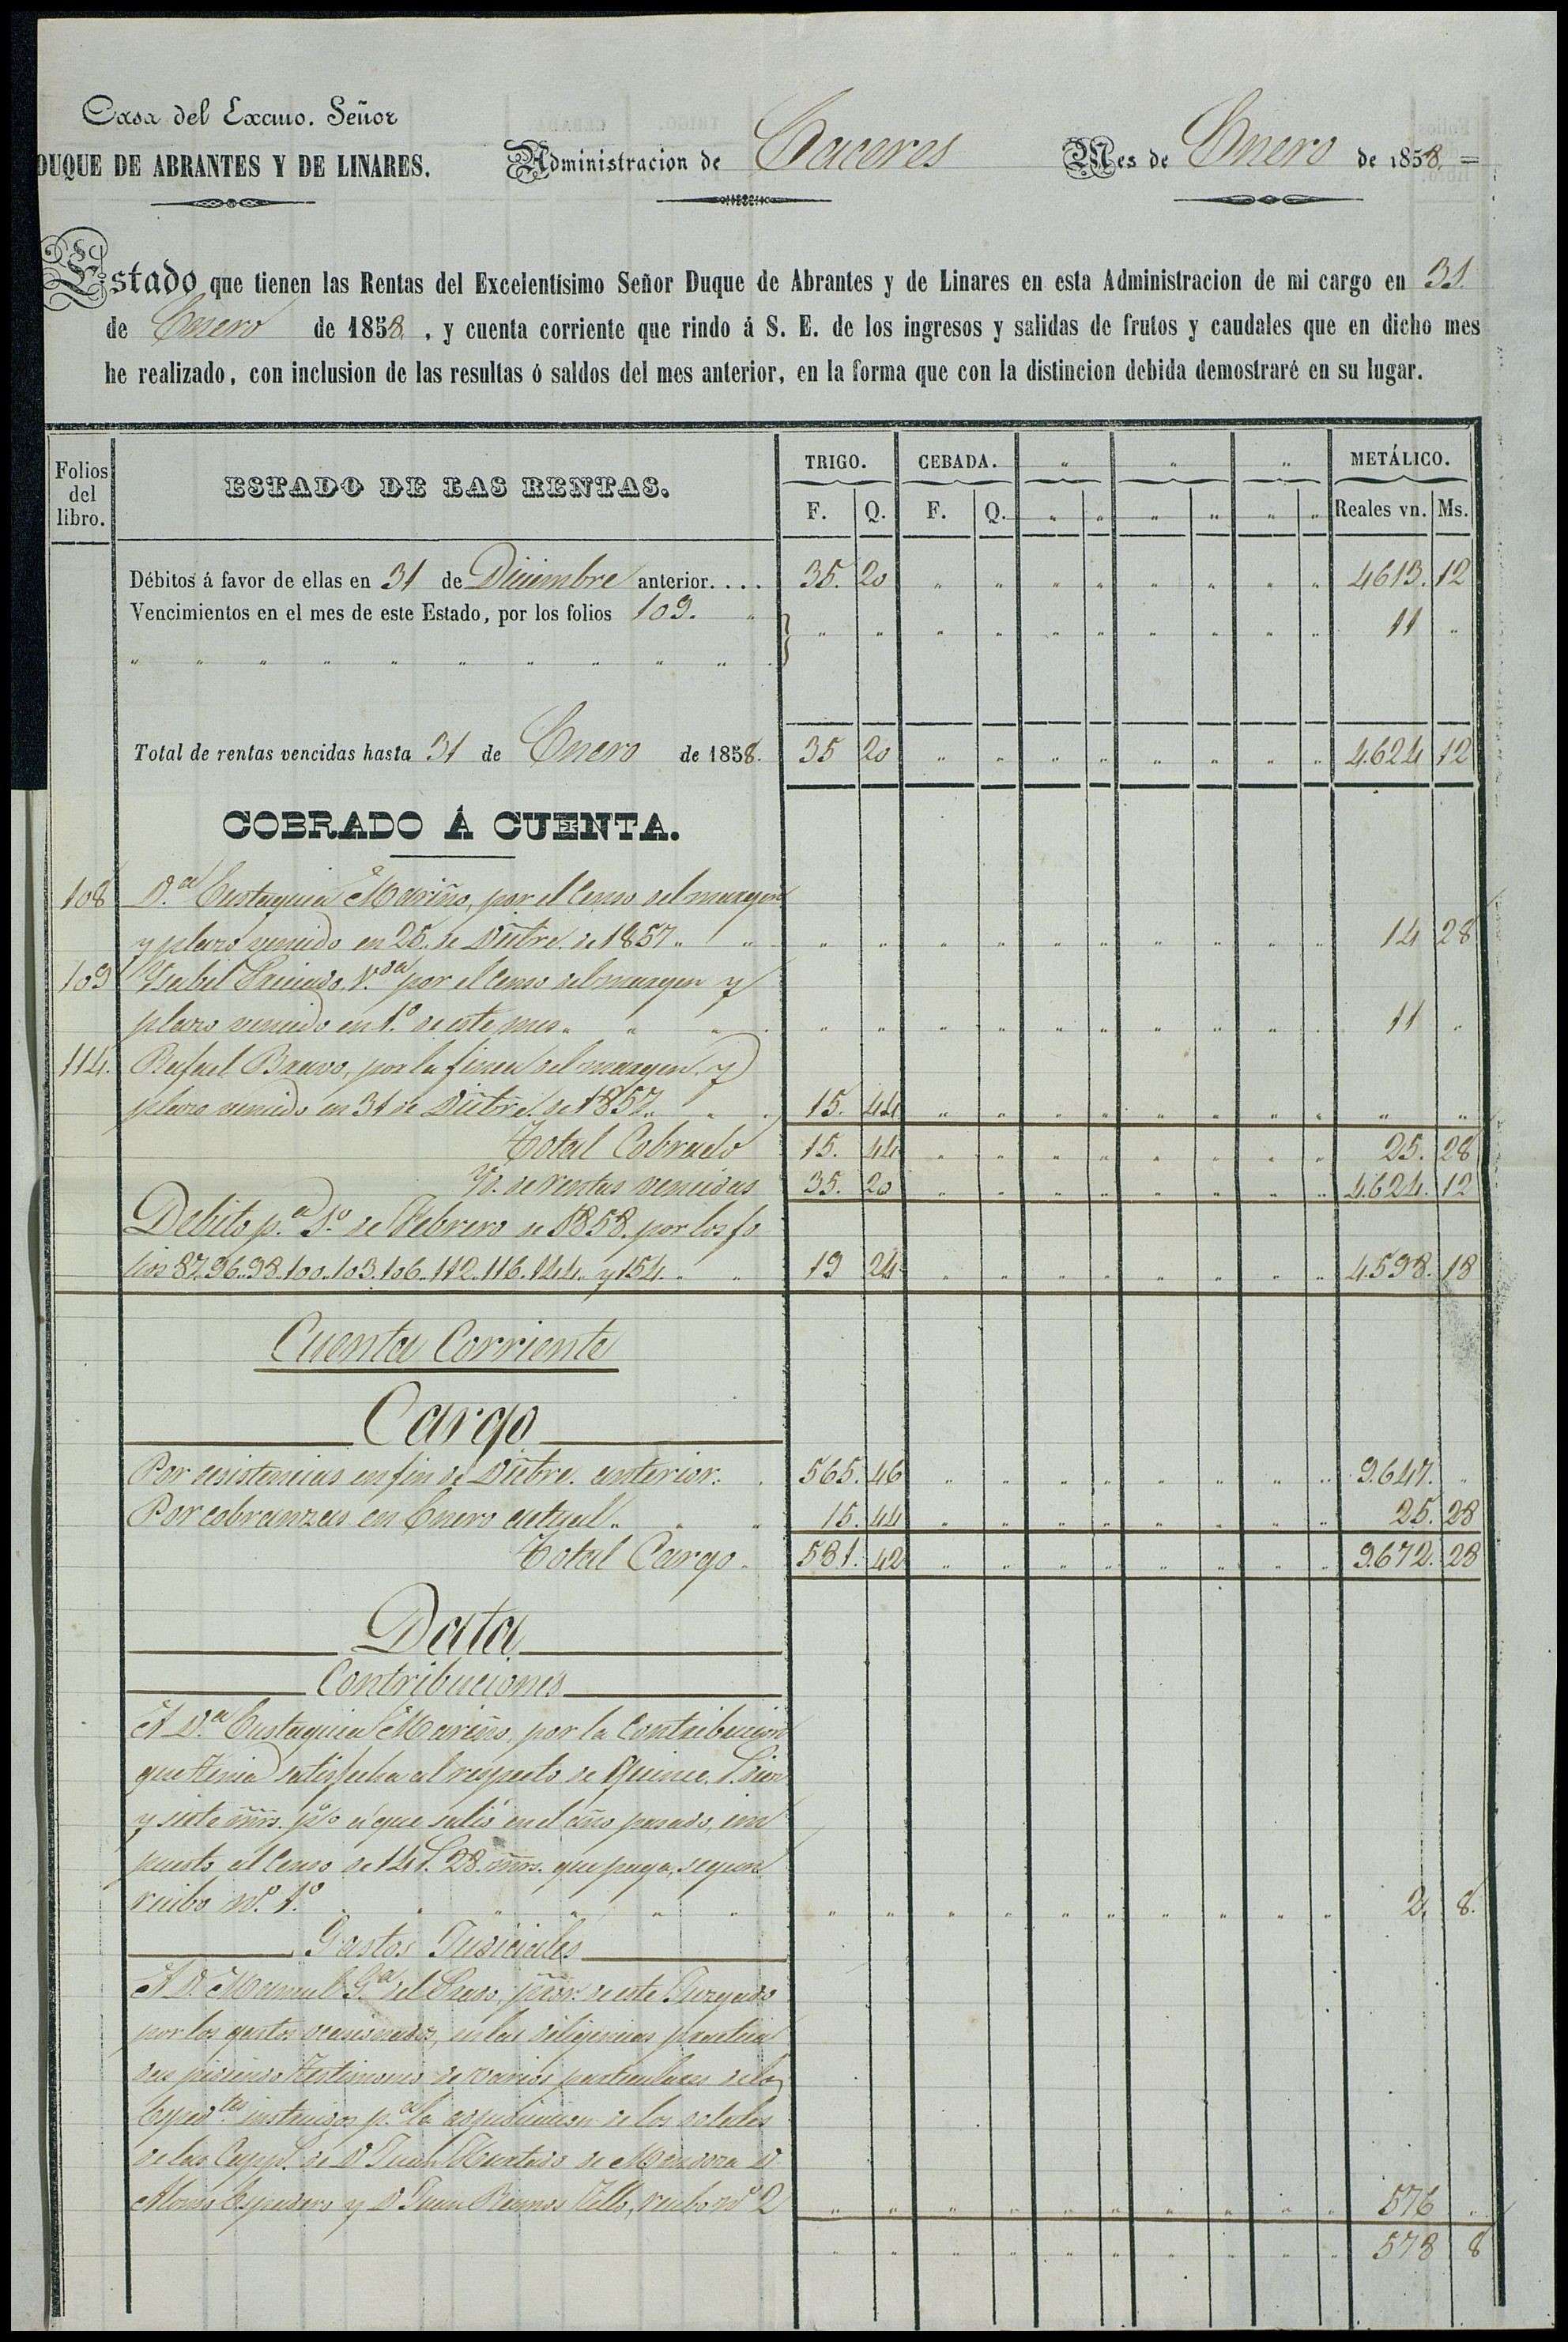 Casa del Excmo. Señor
DUQUE DE ABRANTES Y DE LINARES.
Administracion de Caceres
Mes de Enero de 1858. =
Estado que tienen las Rentas del Excelentísimo Señor Duque de Abrantes y de Linares en esta Administracion de mi cargo en 31.
de Enero de 1858, y cuenta corriente que rindo á S. E. de los ingresos y salidas de frutos y caudales que en dicho mes
he realizado, con inclusion de las resultas ó saldos del mes anterior, en la forma que con la distincion debida demostraré en su lugar.
Folios del libro.
ESTADO DE LAS RENTAS.
TRIGO. CEBADA. " " " METÁLICO.
F. Q. F. Q. " " " " " " Reales vn. Ms.
Débitos á favor de ellas en 31 de Diciembre anterior.... 35. 20 " " " " " " " " 4613. 12
Vencimientos en el mes de este Estado, por los folios 109. " " " " " " " " " " " 11 "
" " " " " " " " " "
Total de rentas vencidas hasta 31 de Enero de 1858. 35 20 " " " " " " " " 4.624 12
COBRADO Á CUENTA.
108 D.ª Eustaquia Mariño, por el Censo del margen
y plazo vencido en 25. de Dictre. de 1857 " " " " " " " " " " " " 14 28
109 Ysabel V.da por el Censo del margen y
plazo vencido en 1.º de este mes " " " " " " " " " " " " 11 "
114. Rafael Bravo, por la finca del margen y
plazo vencido en 31 de Dictre. de 1857 " " 15. 44 " " " " " " " " " "
Total Cobrado 15. 44 " " " " " " " " 25. 28
Yd. de rentas vencidas 35. 20 " 4.624. 12
Debito p.ª 1.º de Febrero de 1858. por los fo
lios 87..96..98..100..103..106..112..116..144.. y 154.. " " 19 24 " " " " " " " " 4.598. 18
Cuenta Corriente
Cargo
Por existencias en fin de Dictre. anterior.. 565. 46 " " " " " " " " 9.647. "
Por cobranzas en Enero actual " " " 15. 44 " " " " " " " " 25. 28
Total Cargo. 581. 42 " " " " " " " " 9.672. 28
Data
Contribuciones
A D.ª Eustaquia Mariño, por la Contribucion
que tenia satisfecha al respecto de Quince r.s diez
y siete mrs. p% á que salió en el año pasado, im
puesto al Censo de 14 r.s 28. mrs. que paga, segun
recibo nº. 1.º " " " " " " " " " " " " " " " 2. 8.
Gastos Judiciales
A D. Manuel G.ª del Prado, de este Juzgado
por los gastos ocasionados, en las diligencias practica
das pidiendo testimonio de varios particulares de los
Exped.tes instruidos p.ª la adjudicacion de los
de las Capp.s de D. Juan Hurtado de Mendoza D.
Alonso Espadero y D Juan Ramos Tello, recibo nº 2 " " " " " " " " " " 576 "
" " " " " " " " " " 578 8